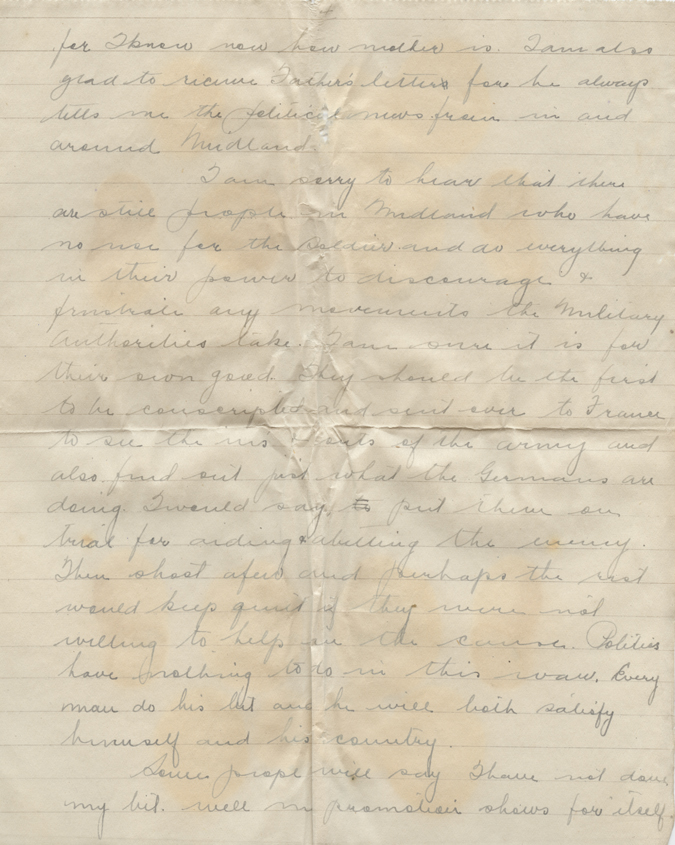 for I know now how mother is. I am also
glad to recieve Father's letters for he always
tells me the political news from in and
around Midland.
I am sorry to hear that there
are still people in Midland who have
no use for the soldier and do everything
in their power to discourage &
frustrate any movements the Military
Authorities take. I am sure it is for
their own good. They should be the first
to be conscripted and sent over to France
to see the ins & outs of the army and
also find out just what the Germans are
doing. I would say to put them on
trial for aiding & abetting the enemy.
Then shoot a few and perhaps the rest
would keep quiet if they were not
willing to help on the cause. Politics
have nothing to do in this war. Every
man do his bit and he will both satisfy
himself and his country.
Some people will say I have not done
my bit. well my promotion shows for itself.